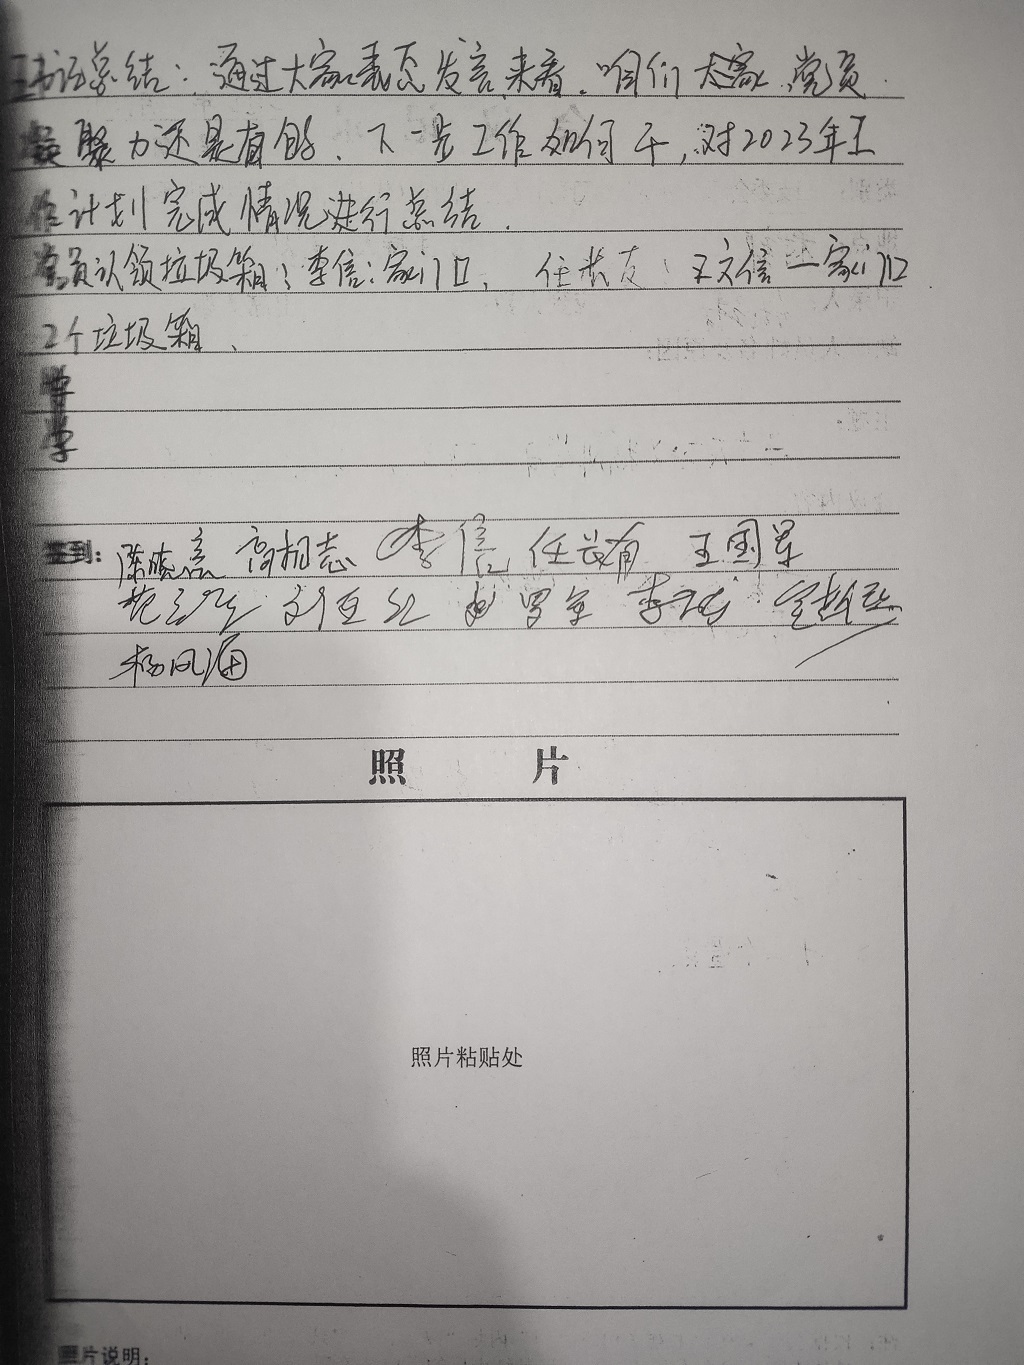 王书记总结：通过大家表态发言来看，咱们大家党员
凝聚力还是有的、下一步工作如何干，对2023年工
作计划完成情况进行总结.
党员认领垃圾箱：李信：家门口、 任长友： 王文信一家门口
2个垃圾箱、
学
学
签到： 陈晓亮 高相志 李信 任长有 王国军
李
杨凤海
照 片
照片粘贴处
照片说明：